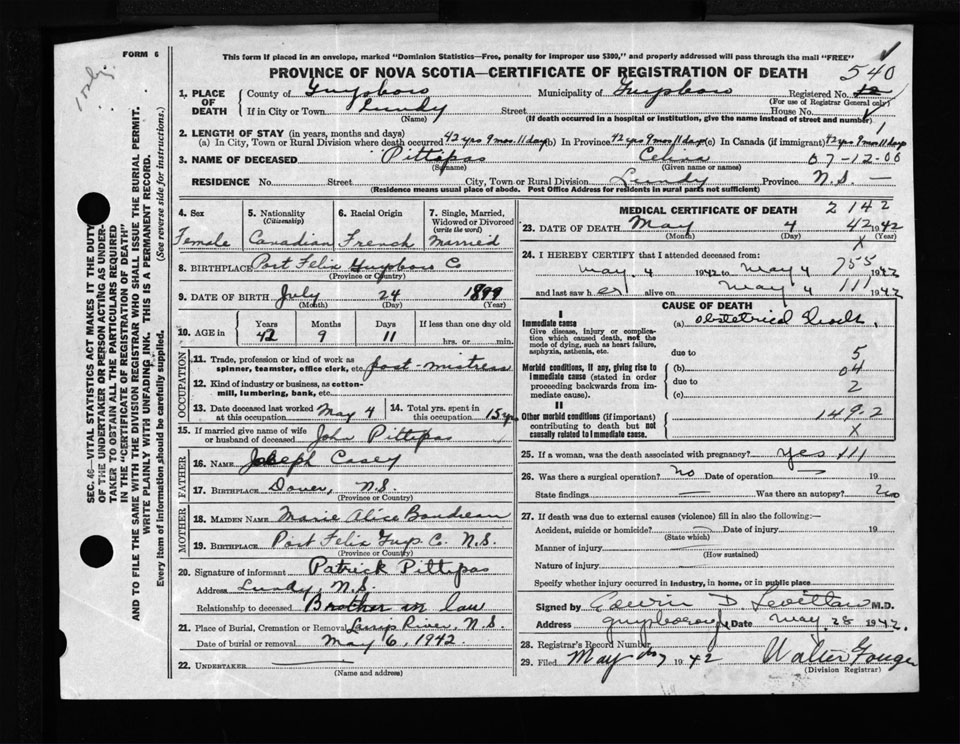 FORM 6
This form if placed in an envelope, marked "Dominion Statistics—Free, penalty for improper use $300," and properly addressed will pass through the mail "FREE"
PROVINCE OF NOVA SCOTIA—CERTIFICATE OF REGISTRATION OF DEATH 540
1. PLACE OF DEATH
County of Guysboro Municipality of Guysboro Registered No.
(For use of Registrar General only)
If in City or Town Lundy Street House No.
(Name) (If death occurred in a hospital or institution, give the name instead of street and number)
2. LENGTH OF STAY (in years, months and days)
(a) In City, Town or Rural Division where death occurred 42 yrs 9 mos 11 days (b) In Province 42 yrs 9 mos 11 days (c) In Canada (if immigrant) 42 yrs 9 mos 11 days
3. NAME OF DECEASED Pittipas Celina 07-12-00
(Surname) (Given name or names)
RESIDENCE No. Street City, Town or Rural Division Lundy Province N.S.
(Residence means usual place of abode. Post Office Address for residents in rural parts not sufficient)
4. Sex
Female
5. Nationality
(Citizenship)
Canadian
6. Racial Origin
French
7. Single, Married, Widowed or Divorced
(write the word)
Married
8. BIRTHPLACE Port Felix Guysboro Co
(Province or Country)
9. DATE OF BIRTH July 24 1899
(Month) (Day) (Year)
10. AGE in Years Months Days If less than one day old
42 9 11 hrs. or min.
OCCUPATION
11. Trade, profession or kind of work as spinner, teamster, office clerk, etc. post-mistress
12. Kind of industry or business, as cotton-mill, lumbering, bank, etc.
13. Date deceased last worked at this occupation May 4
14. Total yrs. spent in this occupation 15 yrs
15. If married give name of wife or husband of deceased John Pittipas
FATHER
16. NAME Joseph Casey
17. BIRTHPLACE Dover, N.S.
(Province or Country)
MOTHER
18. MAIDEN NAME Marie Alice Boudreau
19. BIRTHPLACE Port Felix Guys. Co. N.S.
(Province or Country)
20. Signature of informant Patrick Pittipas
Address Lundy, N.S.
Relationship to deceased Brother in law
21. Place of Burial, Cremation or Removal Larrys River, N.S.
Date of burial or removal May 6, 1942
22. UNDERTAKER
(Name and address)
MEDICAL CERTIFICATE OF DEATH 2142
23. DATE OF DEATH May 4 42 1942
(Month) (Day) (Year)
X
24. I HEREBY CERTIFY that I attended deceased from:
May 4 1942 to May 4 755 1942
and last saw her alive on May 4 111 1942
CAUSE OF DEATH
I
Immediate cause
Give disease, injury or complication which caused death, not the mode of dying, such as heart failure, asphyxia, asthenia, etc.
(a) Obstetrical Shock
due to 5
Morbid conditions, if any, giving rise to immediate cause (stated in order proceeding backwards from immediate cause).
(b) 04
due to 2
(c)
II
Other morbid conditions (if important) contributing to death but not causally related to immediate cause. 149.2
X
25. If a woman, was the death associated with pregnancy? Yes 111
26. Was there a surgical operation? no Date of operation 19
State findings Was there an autopsy? no
27. If death was due to external causes (violence) fill in also the following:—
Accident, suicide or homicide? Date of injury 19
(State which)
Manner of injury
(How sustained)
Nature of injury
Specify whether injury occurred in industry, in home, or in public place
Signed by Edwin D M.D.
Address Guysborough Date May 28 1942.
28. Registrar's Record Number
29. Filed May 1942 Walter
(Division Registrar)
SEC. 46—VITAL STATISTICS ACT MAKES IT THE DUTY OF THE UNDERTAKER OR PERSON ACTING AS UNDERTAKER TO OBTAIN ALL THE PARTICULARS REQUIRED IN THE "CERTIFICATE OF REGISTRATION OF DEATH"
AND TO FILE THE SAME WITH THE DIVISION REGISTRAR WHO SHALL ISSUE THE BURIAL PERMIT.
WRITE PLAINLY WITH UNFADING INK. THIS IS A PERMANENT RECORD.
Every item of information should be carefully supplied. (See reverse side for instructions.)